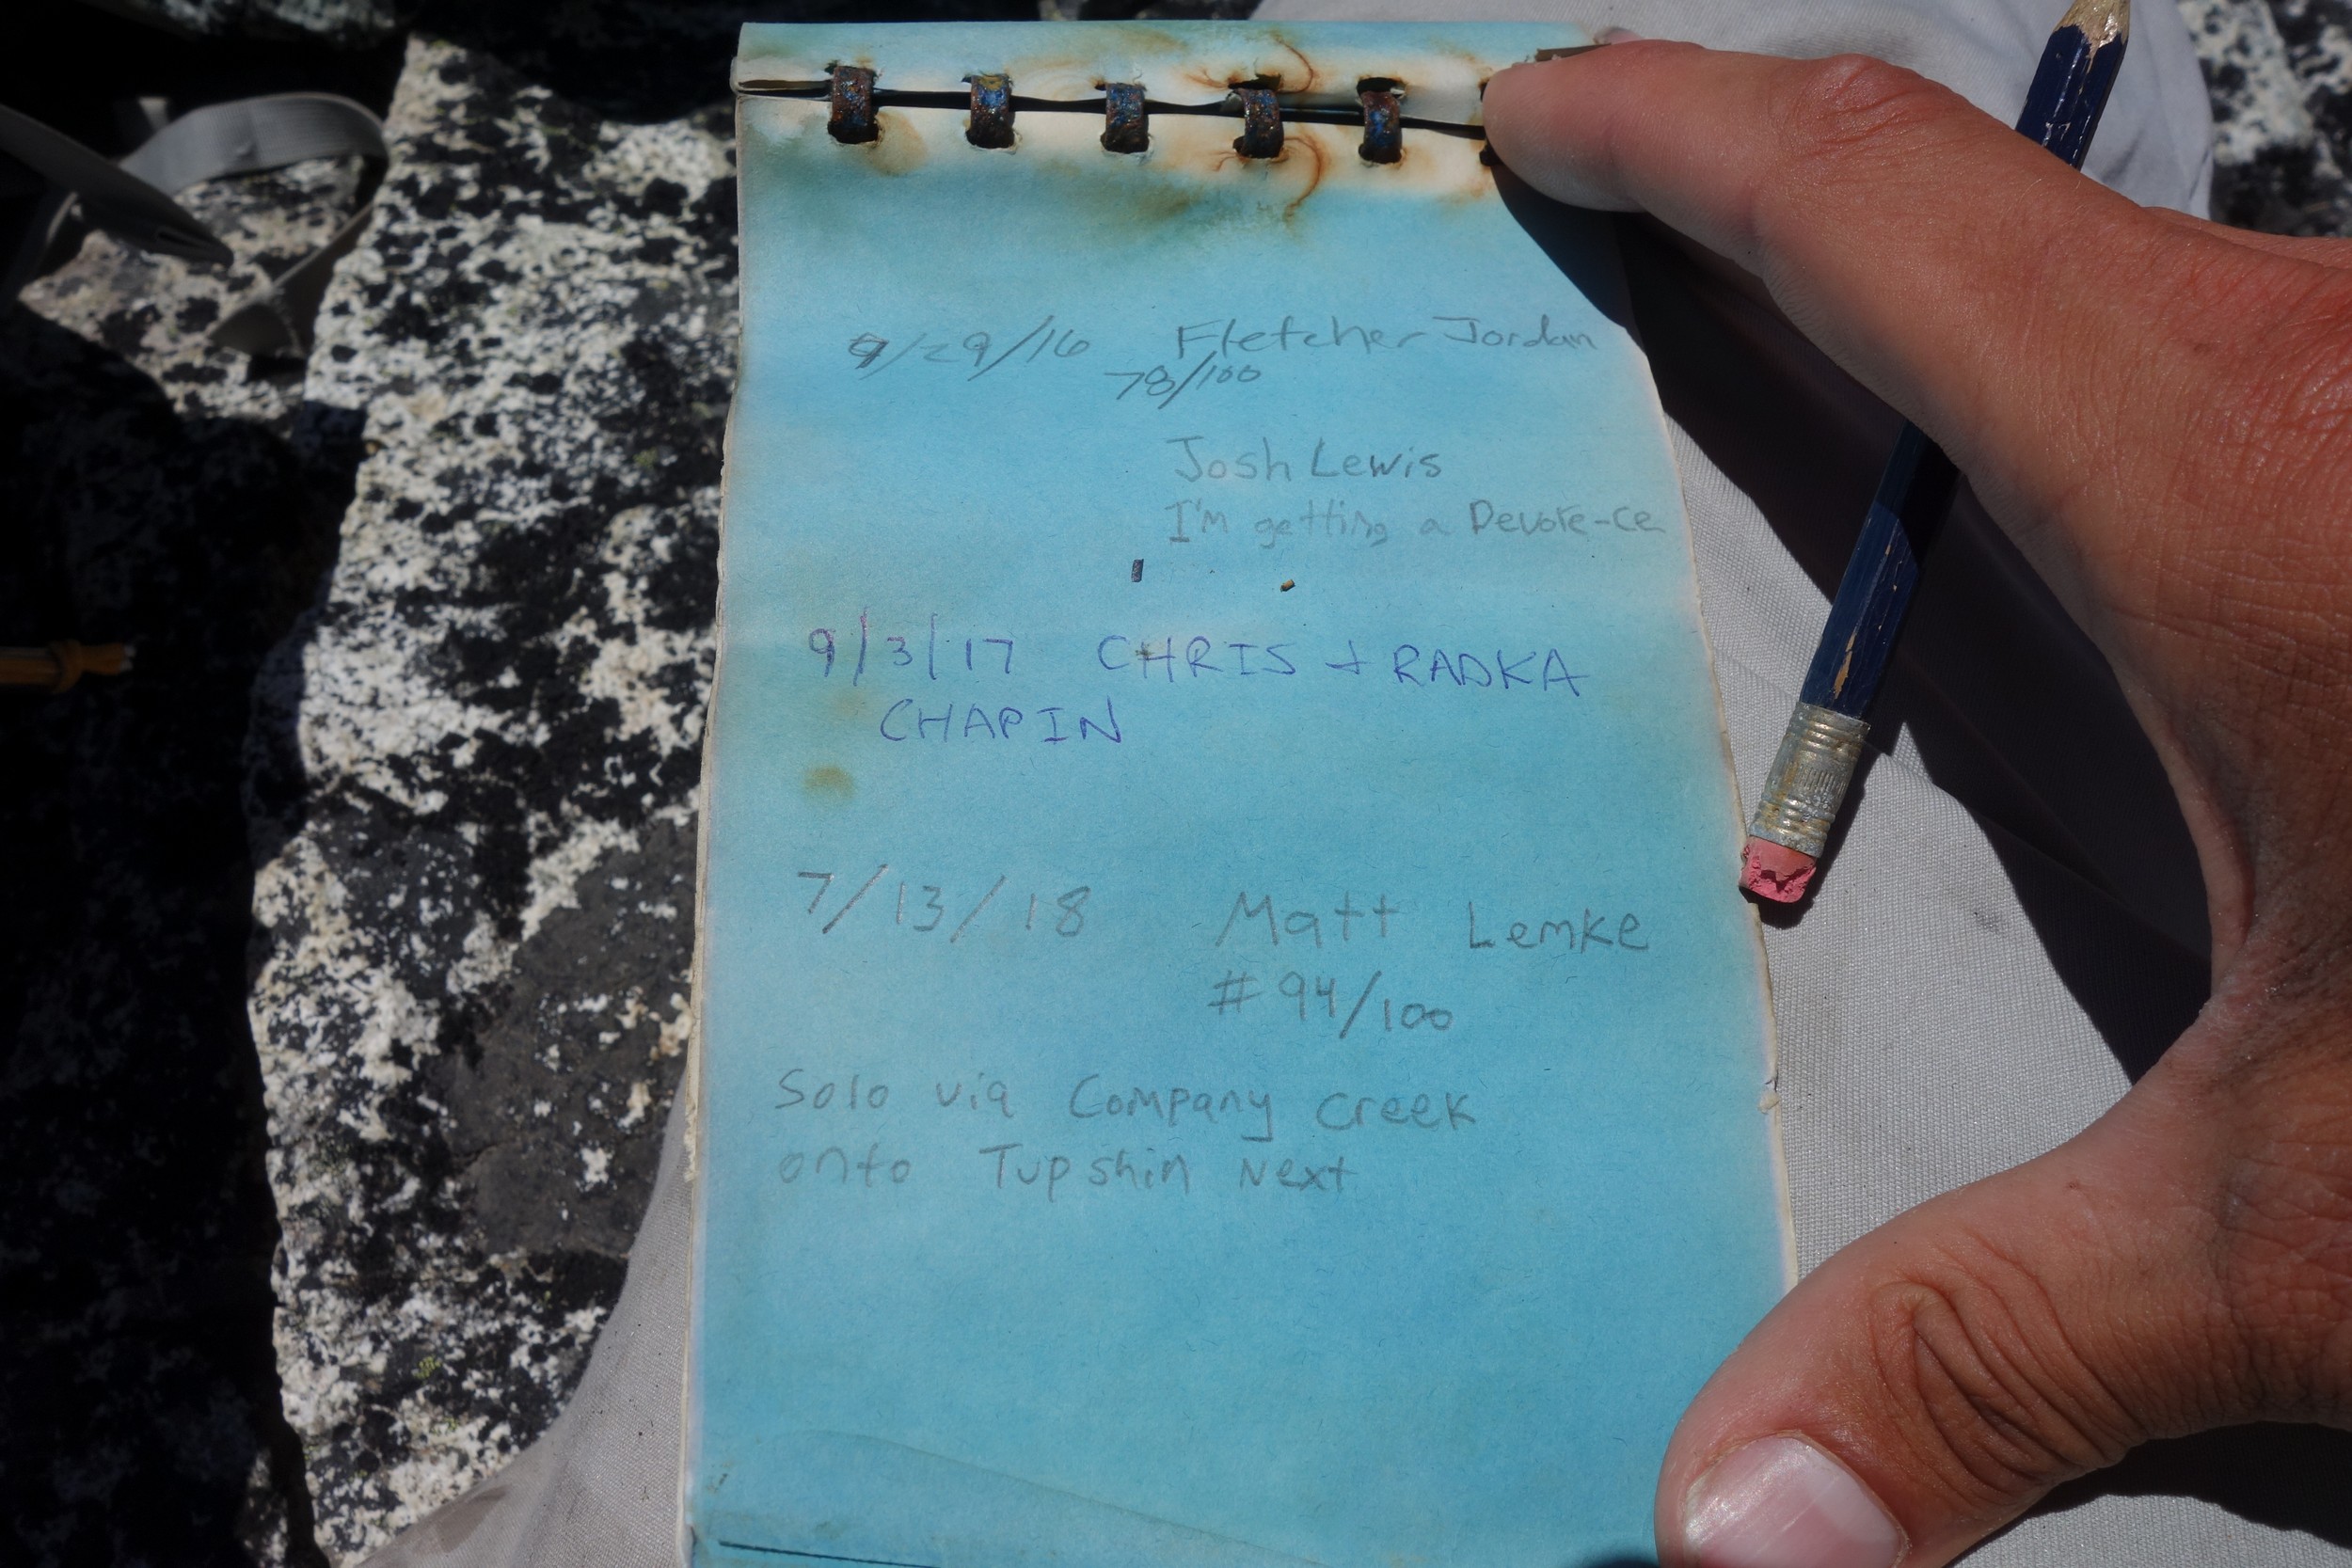 9/29/16 Fletcher Jordan
78/100
Josh Lewis
I'm getting a Devore-ce
9/3/17 CHRIS + RADKA
CHAPIN
7/13/18 Matt Lemke
#94/100
Solo via Company Creek
onto Tupshin Next